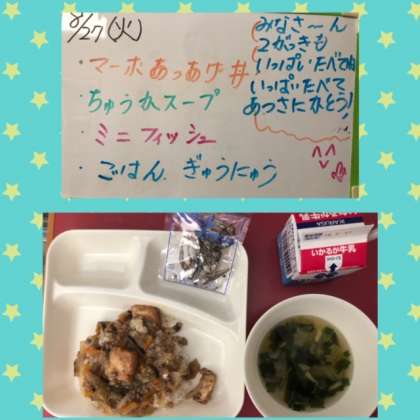 8/27(火)
・マーボあつあげ丼
・ちゅうかスープ
・ミニフィッシュ
・ごはん、ぎゅうにゅう
みなさ〜ん
2がっきも
いっぱいたべてね
いっぱいたべて
あつさにかとう!
いかるが牛乳